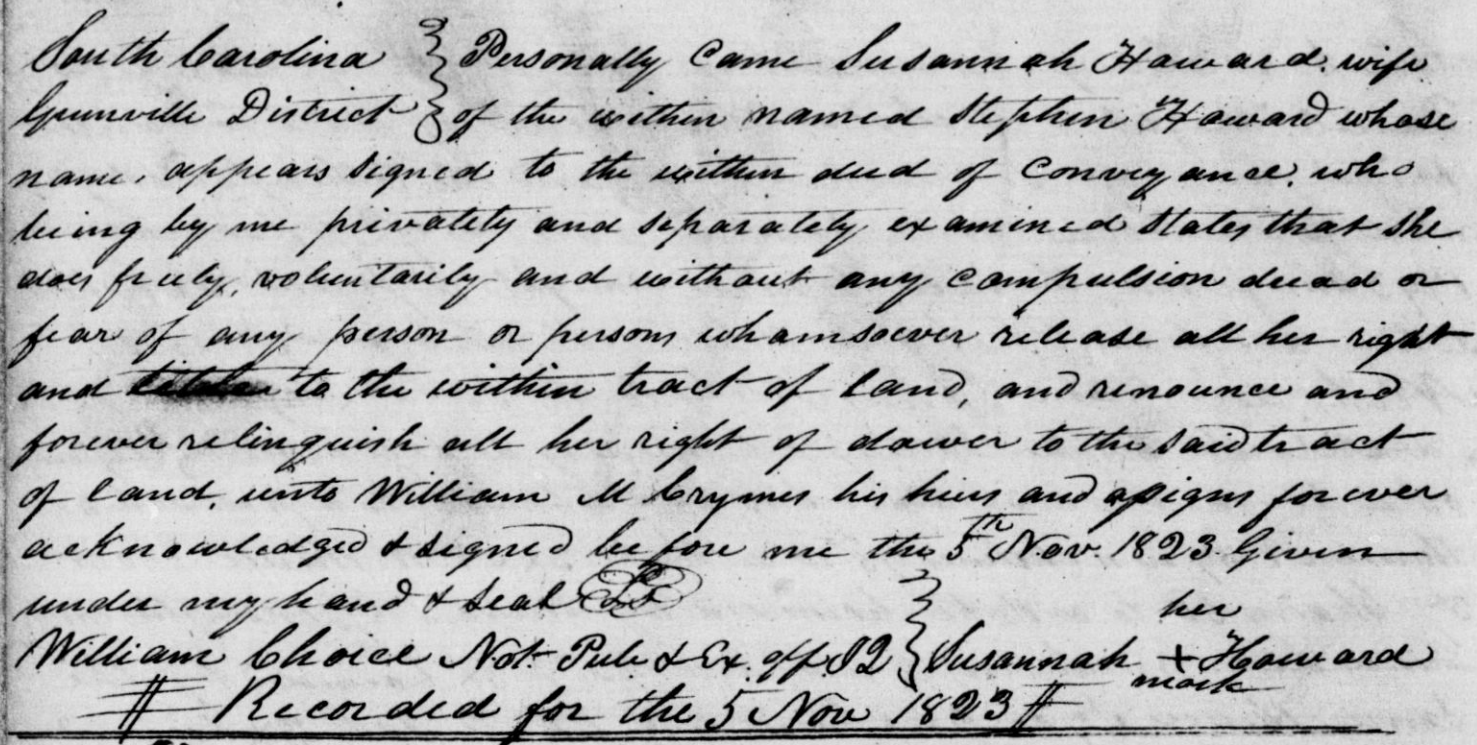 South Carolina } Personally came Susannah Howard wife
Greenville District } of the within named Stephen Howard whose
name, appears signed to the within deed of conveyance, who
being by me privately and separately examined states that she
does freely, voluntarily and without any compulsion dread or
fear of any person or persons whomsoever release all her right
and to the within tract of land, and renounce and
forever relinquish all her right of dower to the said tract
of land, unto William M Crymes his heirs and assigns forever
acknowledged & signed before me the 5th Nov. 1823 Given
under my hand & seal LS } her
William Choice Not. Pub & Ex. off } Susannah + Howard
mark
Recorded for the 5 Nov 1823